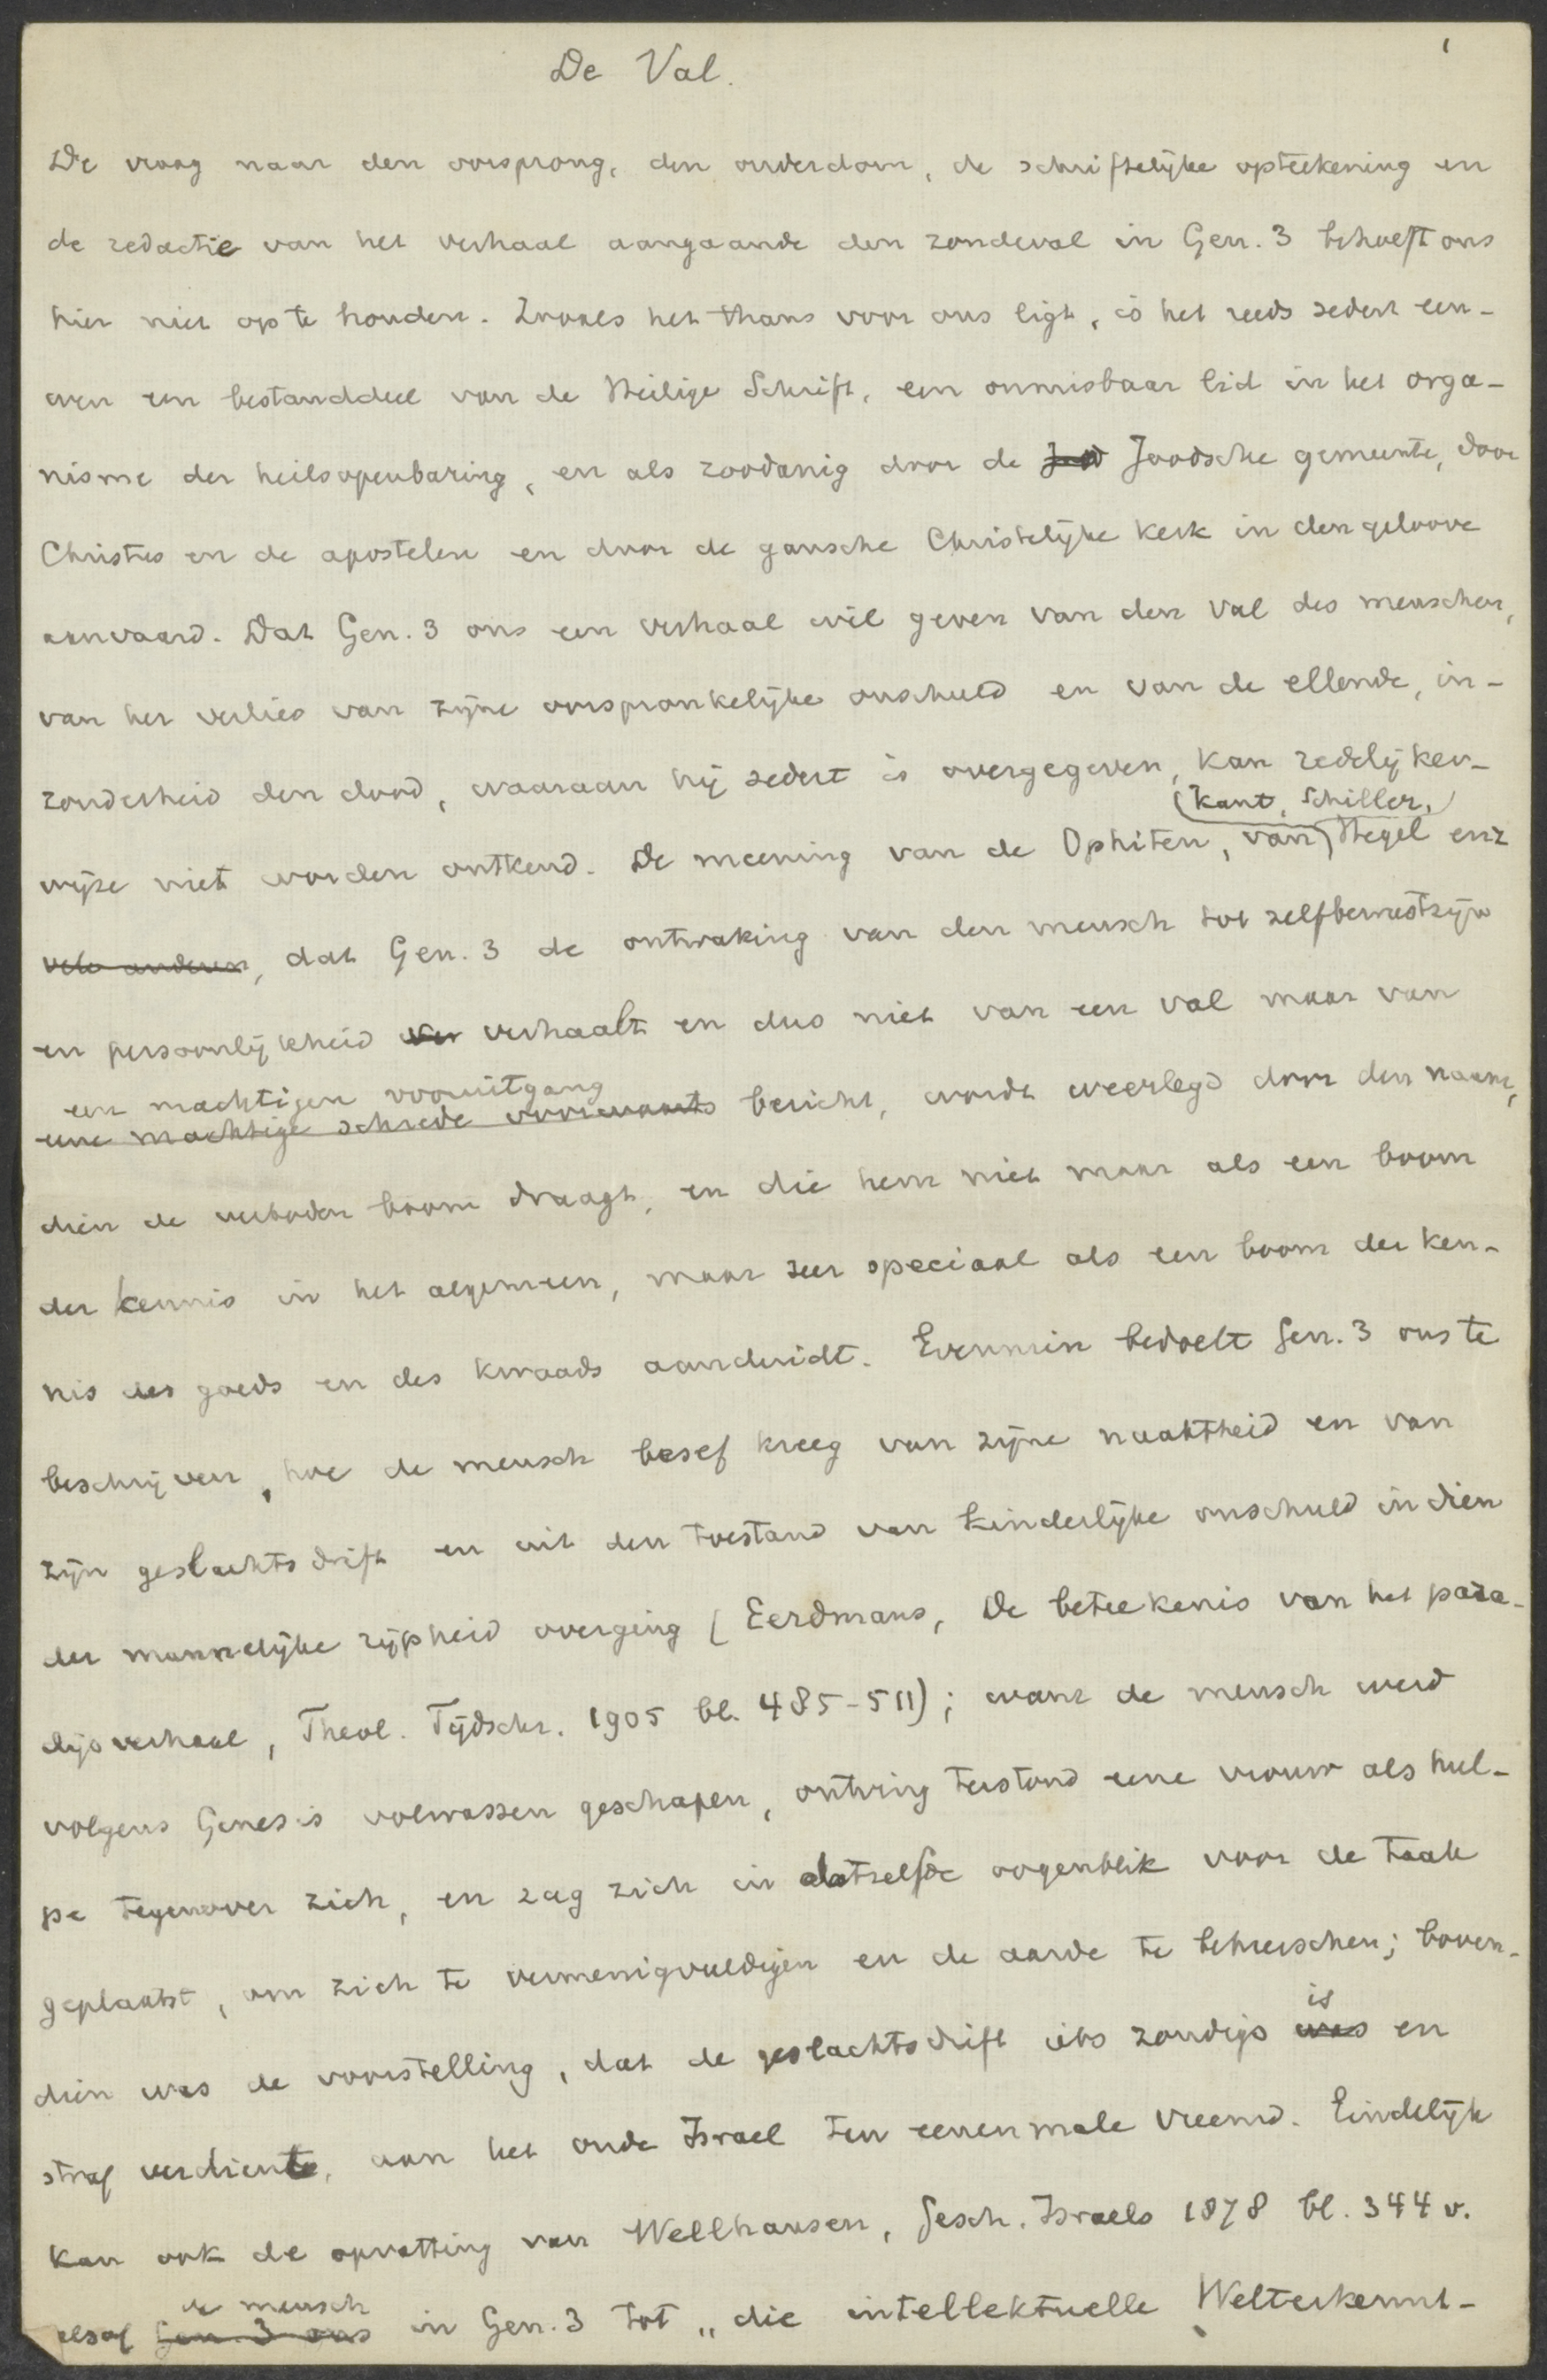 1
De Val.
De vraag naar den oorsprong, den ouderdom, de schriftelijke opteekening en
de redactie van het verhaal aangaande den zondeval in Gen. 3 behoeft ons
hier niet op te houden. Zooals het thans voor ons ligt, is het reeds sedert eeu-
wen een bestanddeel van de Heilige Schrift, een onmisbaar lid in het orga-
nisme der heilsopenbaring, en als zoodanig door de Jood Joodsche gemeente, door
Christus en de apostelen en door de gansche Christelijke kerk in den geloove
aanvaard. Dat Gen. 3 ons een verhaal wil geven van den val des menschen,
van het verlies van zijne oorspronkelijke onschuld en van de ellende, in-
zonderheid den dood, waaraan hij sedert is overgegeven, kan redelijker-
(Kant, Schiller,)
wijze niet worden ontkend. De meening van de Ophiten, van Hegel enz
vele anderen, dat Gen. 3 de ontwaking van den mensch tot zelfbewustzijn
en persoonlijkheid ver verhaalt en dus niet van een val maar van
een machtigen vooruitgang
eene machtige schrede voorwaarts bericht, wordt weerlegd door den naam,
dien de verboden boom draagt, en die hem niet maar als een boom
der kennis in het algemeen, maar zeer speciaal als een boom der ken-
nis des goeds en des kwaads aanduidt. Evenmin bedoelt Gen. 3 ons te
beschrijven, hoe de mensch besef kreeg van zijne naaktheid en van
zijn geslachtsdrift en uit den toestand van kinderlijke onschuld in dien
der mannelijke rijpheid overging (Eerdmans, De beteekenis van het para-
dijsverhaal, Theol. Tijdschr. 1905 bl. 485-511); want de mensch werd
volgens Genesis volwassen geschapen, ontving terstond eene vrouw als hul-
pe tegenover zich, en zag zich in datzelfde oogenblik voor de taak
geplaatst, om zich te vermenigvuldigen en de aarde te beheerschen; boven-
is
dien was de voorstelling, dat de geslachtsdrift iets zondigs was en
straf verdiente, aan het oude Israel ten eenenmale vreemd. Eindelijk
kan ook de opvatting van Wellhausen, Gesch. Israels 1878 bl. 344 v.
de mensch
alsof Gen. 3 ons in Gen. 3 tot „die intellektuelle Welterkennt-